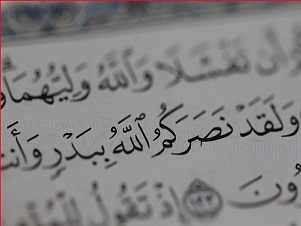 أَن تَفْشَلَا وَٱللَّهُ وَلِيُّهُمَا
وَلَقَدْ نَصَرَكُمُ ٱللَّهُ بِبَدْرٍ وَأَنتُ
ونَ ١٢٣ إِذْ تَقُولُ لِلْمُؤْ